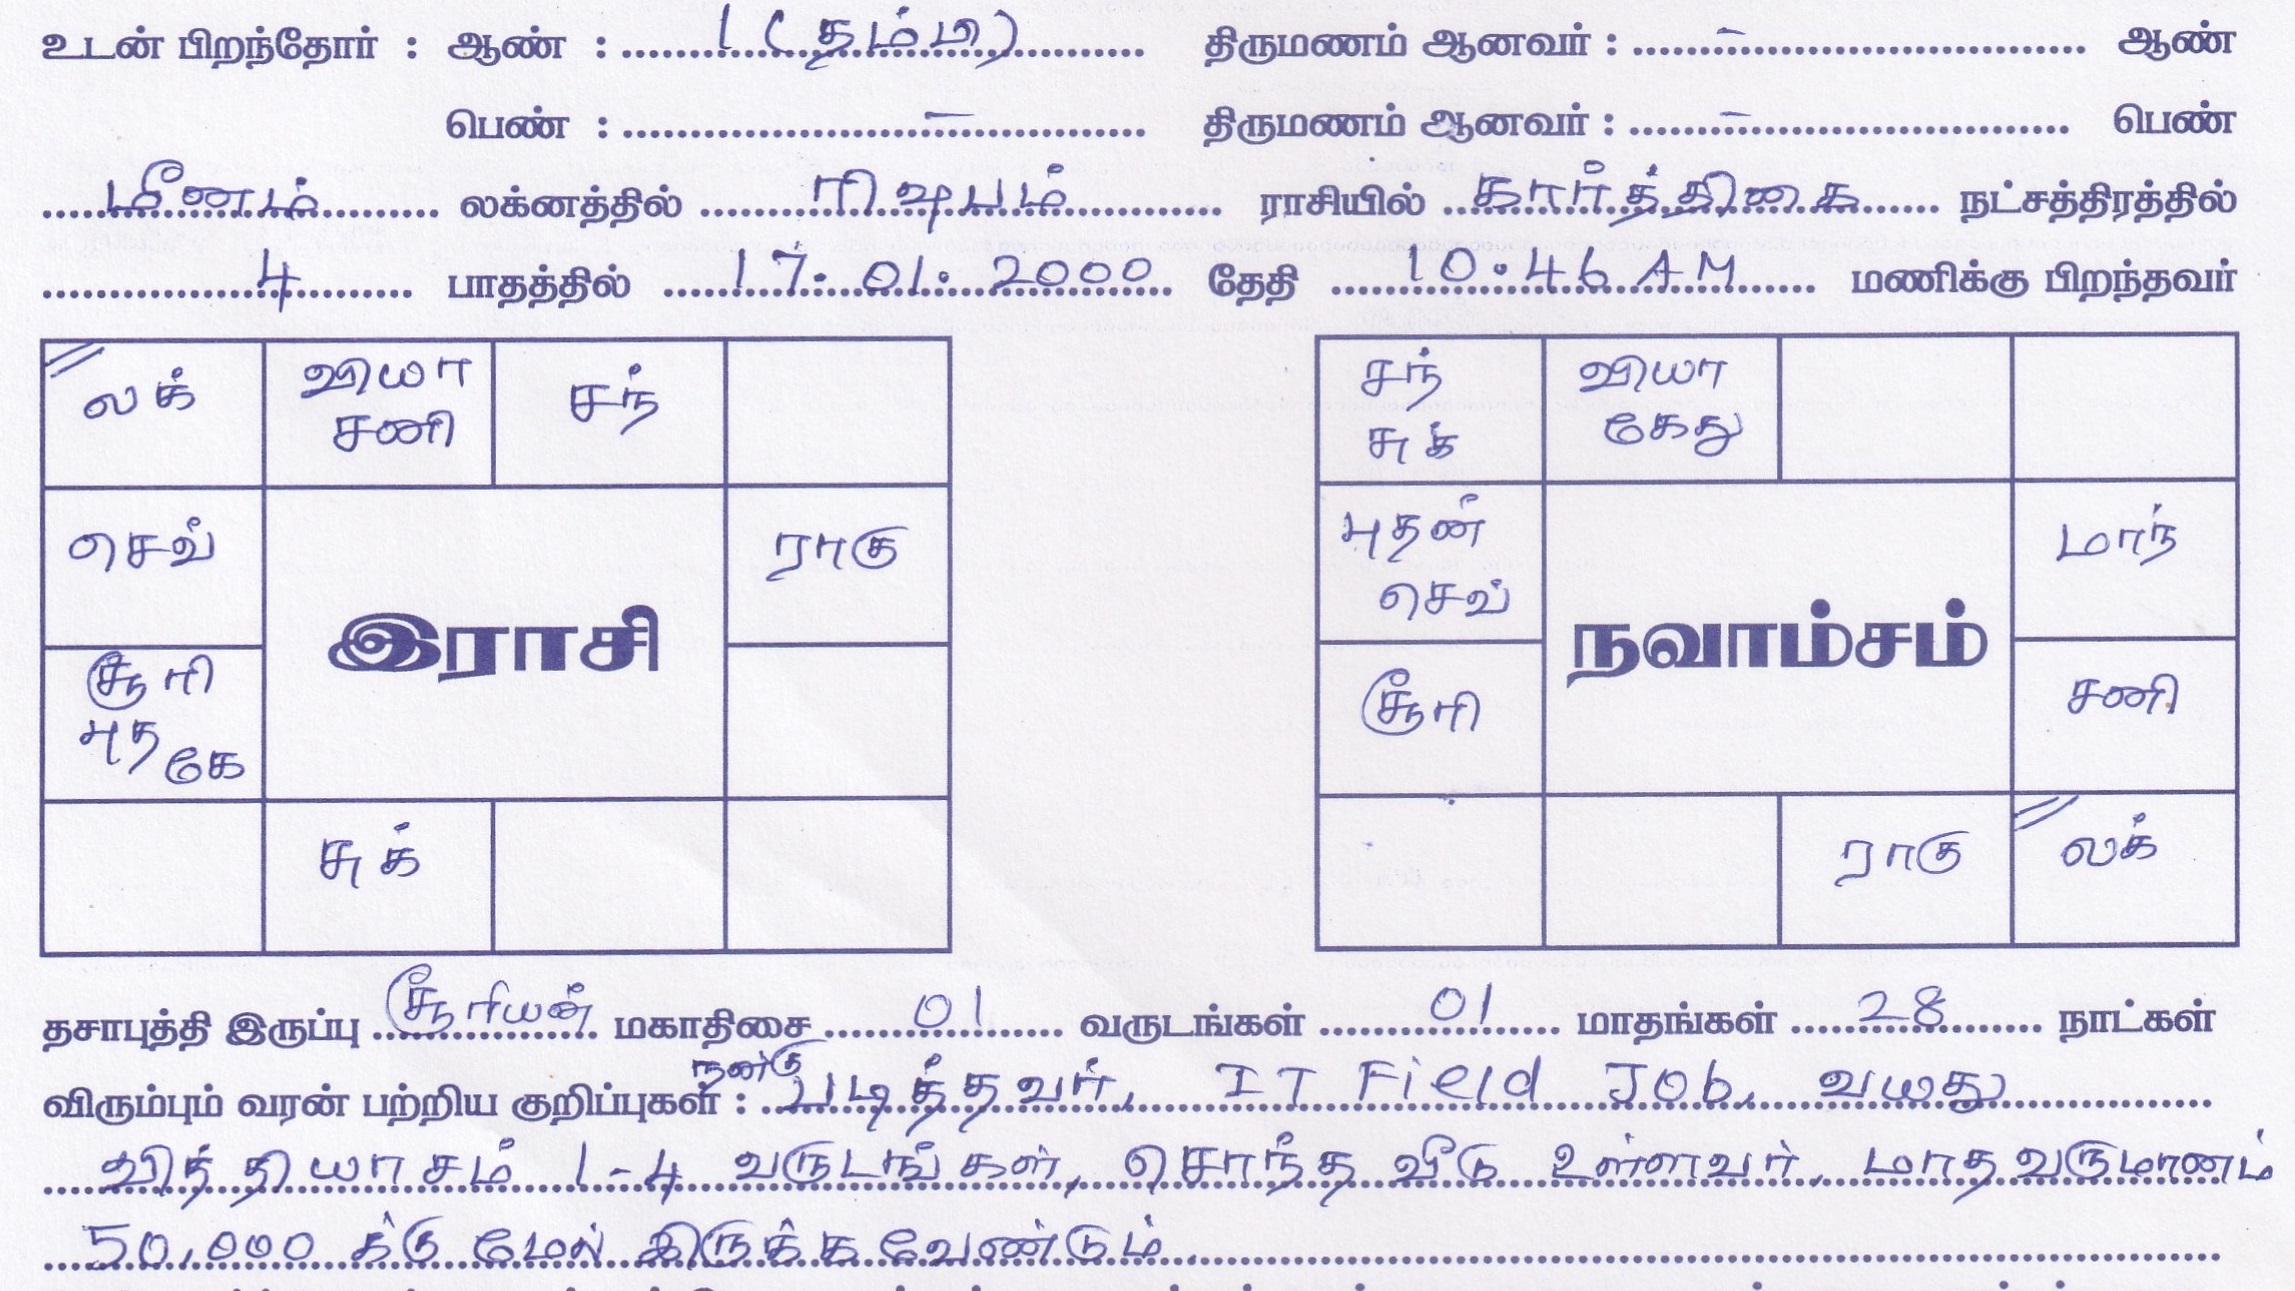 உடன் பிறந்தோர் : ஆண் : 1 (தம்பி) திருமணம் ஆனவர் : – ஆண்
பெண் : – திருமணம் ஆனவர் : – பெண்
மீனம் லக்னத்தில் ரிஷபம் ராசியில் கார்த்திகை நட்சத்திரத்தில்
4 பாதத்தில் 17.01.2000 தேதி 10.46 AM மணிக்கு பிறந்தவர்
லக்
வியா
சனி
சந்
செவ்
ராகு
இராசி
சூரி
புத
கே
சுக்
சந்
சுக்
வியா
கேது
புதன்
செவ்
மாந்
நவாம்சம்
சூரி
சனி
ராகு
லக்
தசாபுத்தி இருப்பு சூரியன் மகாதிசை 01 வருடங்கள் 01 மாதங்கள் 28 நாட்கள்
விரும்பும் வரன் பற்றிய குறிப்புகள் : நன்கு படித்தவர், IT Field Job, வயது
வித்தியாசம் 1-4 வருடங்கள், சொந்த வீடு உள்ளவர், மாதவருமானம்
50,000 க்கு மேல் இருக்கவேண்டும்.